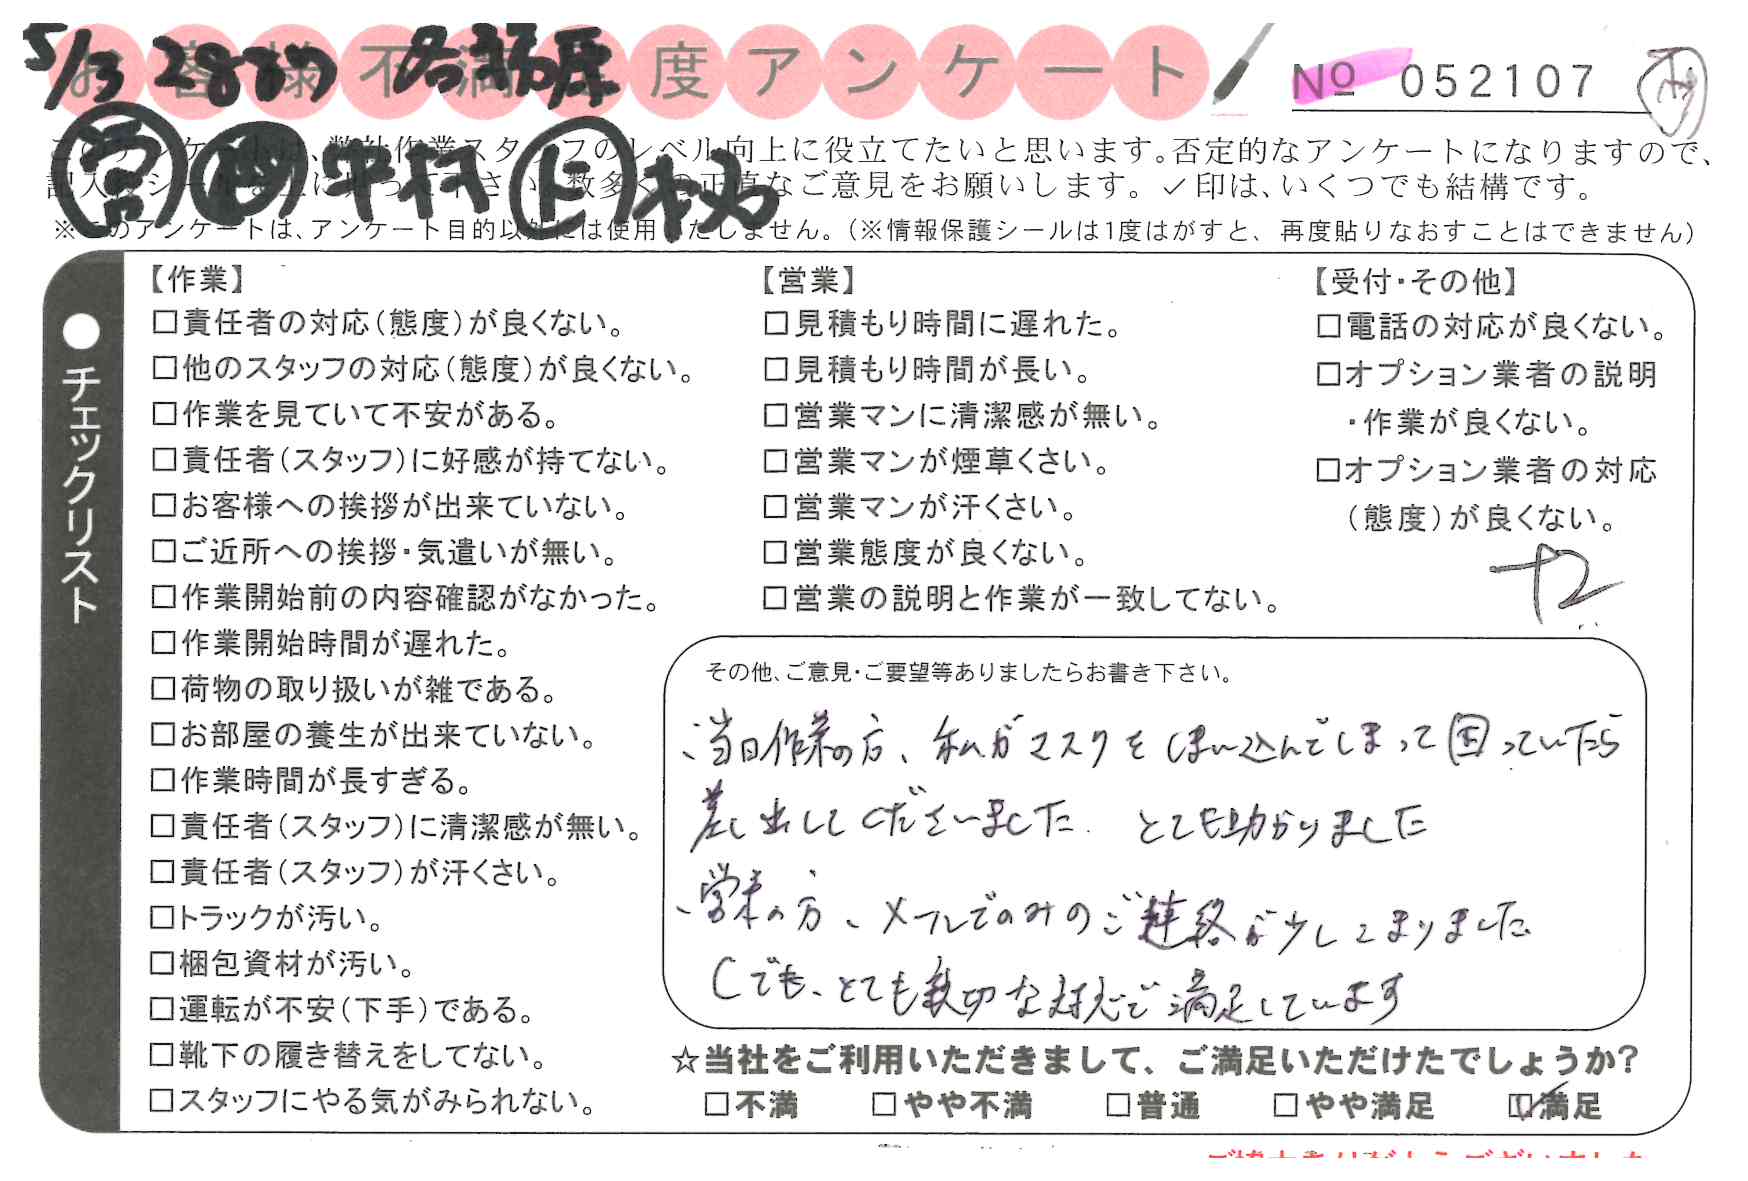 5/3
お客様不満足度アンケート
No 052107
このアンケートは、弊社作業スタッフのレベル向上に役立てたいと思います。否定的なアンケートになりますので、
記入後シールを上に貼って下さい。数多くの正直なご意見をお願いします。✓印は、いくつでも結構です。
※このアンケートは、アンケート目的以外には使用いたしません。(※情報保護シールは1度はがすと、再度貼りなおすことはできません)
●チェックリスト
【作業】
□責任者の対応(態度)が良くない。
□他のスタッフの対応(態度)が良くない。
□作業を見ていて不安がある。
□責任者(スタッフ)に好感が持てない。
□お客様への挨拶が出来ていない。
□ご近所への挨拶・気遣いが無い。
□作業開始前の内容確認がなかった。
□作業開始時間が遅れた。
□荷物の取り扱いが雑である。
□お部屋の養生が出来ていない。
□作業時間が長すぎる。
□責任者(スタッフ)に清潔感が無い。
□責任者(スタッフ)が汗くさい。
□トラックが汚い。
□梱包資材が汚い。
□運転が不安(下手)である。
□靴下の履き替えをしてない。
□スタッフにやる気がみられない。
【営業】
□見積もり時間に遅れた。
□見積もり時間が長い。
□営業マンに清潔感が無い。
□営業マンが煙草くさい。
□営業マンが汗くさい。
□営業態度が良くない。
□営業の説明と作業が一致してない。
【受付・その他】
□電話の対応が良くない。
□オプション業者の説明
・作業が良くない。
□オプション業者の対応
(態度)が良くない。
その他、ご意見・ご要望等ありましたらお書き下さい。
・当日作業の方、私がマスクをしまい込んでしまって困っていたら
差し出してくださいました とても助かりました
・営業の方、メールでのみのご連絡が少しこまりました
でも、とても親切な対応で満足しています
☆当社をご利用いただきまして、ご満足いただけたでしょうか?
□不満 □やや不満 □普通 □やや満足 ☑満足